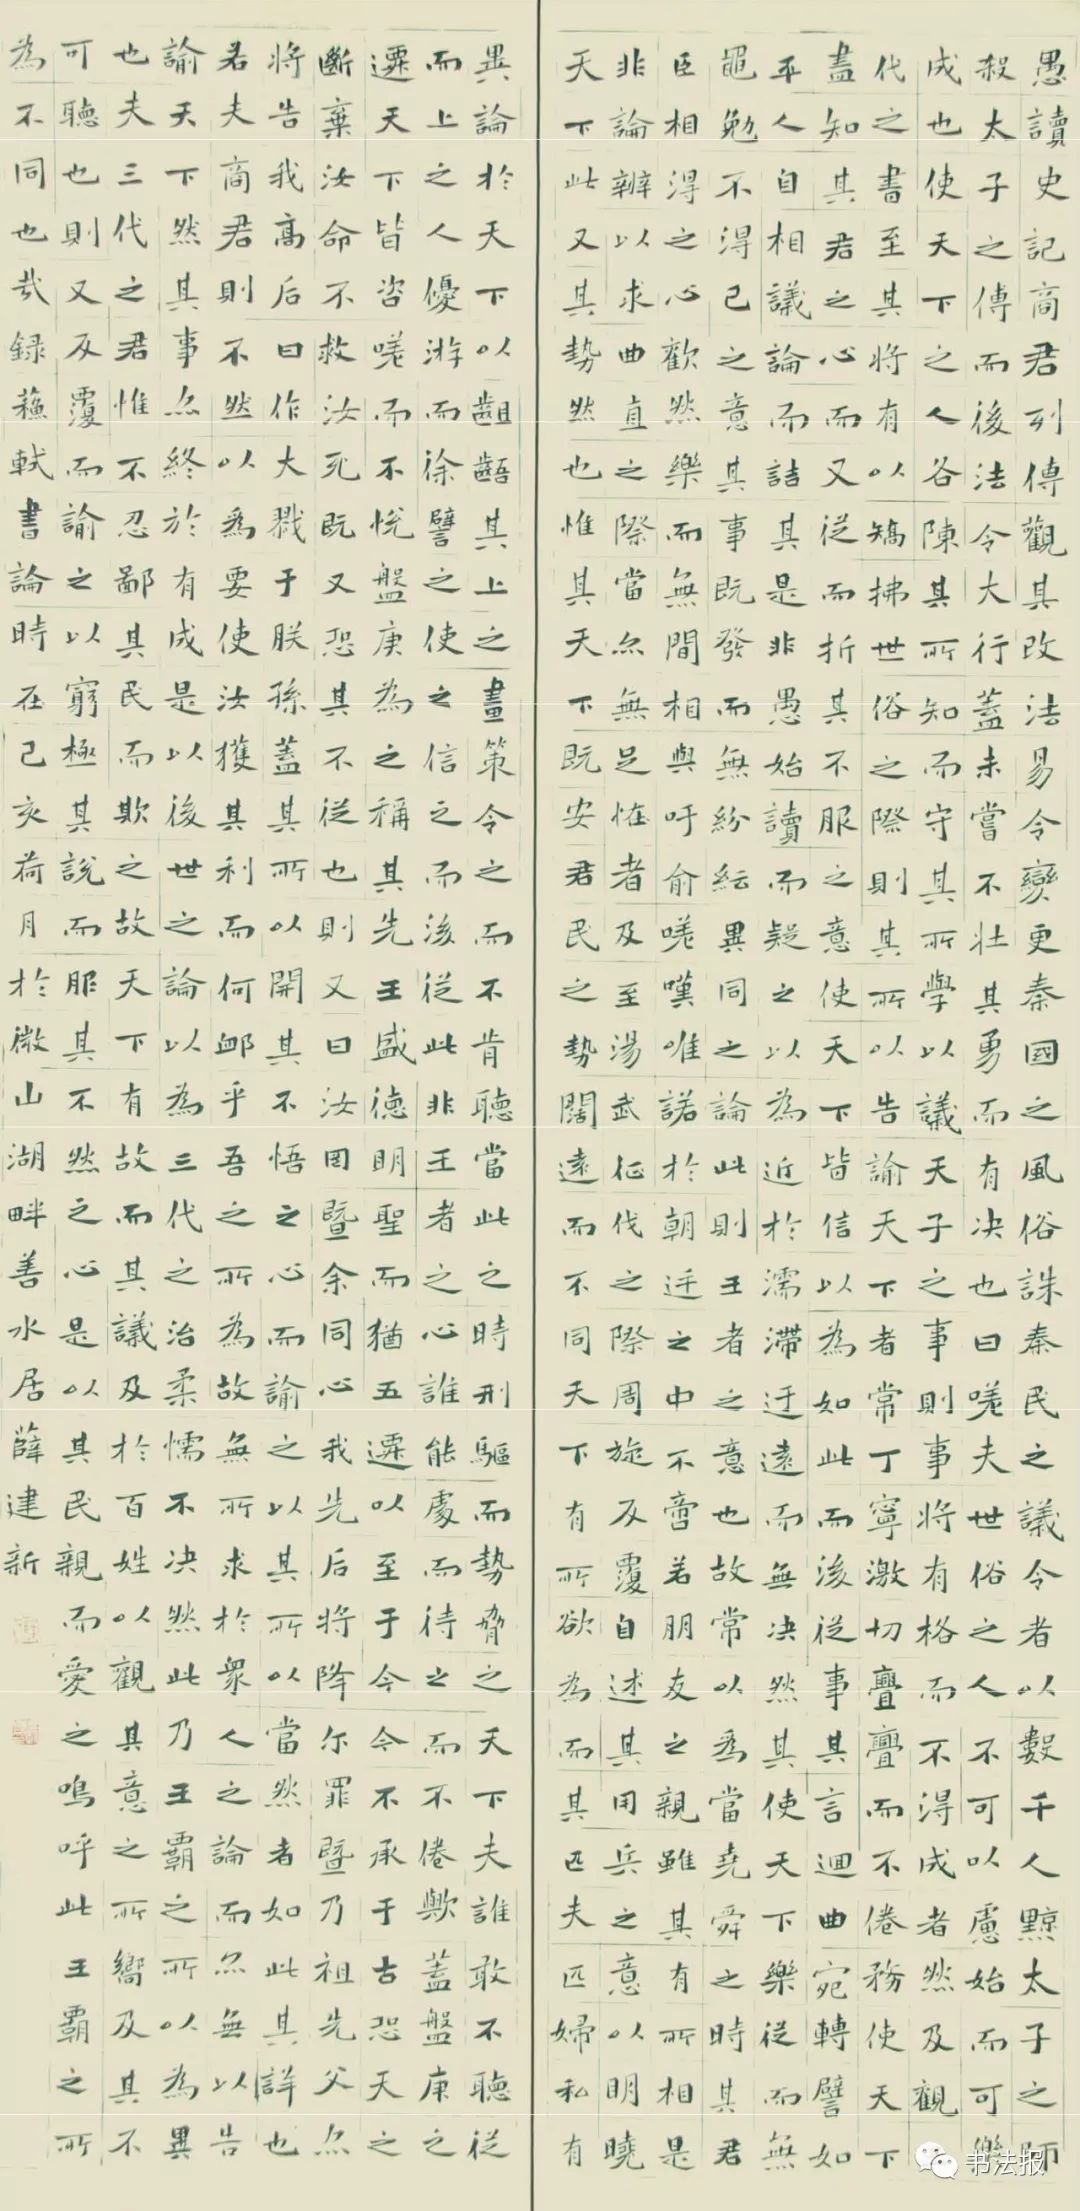 愚讀史記商君列傳觀其改法易令變更秦國之風俗誅秦民之議令者以數千人黥太子之師
殺太子之傅而後法令大行蓋未嘗不壯其勇而有决也曰嗟夫世俗之人不可以慮始而可樂
成也使天下之人各陳其所知而守其所學以議天子之事則事將有格而不得成者然及觀
代之書至其將有以矯拂世俗之際則其所以告諭天下者常丁寧激切亹亹而不倦務使天下
盡知其君之心而又從而折其不服之意使天下皆信以為如此而後從事其言迴曲宛轉譬如
平人自相議論而詰其是非愚始讀而疑之以為近於濡滯迂遠而無决然其使天下樂從而無
黽勉不得已之意其事既發而無紛紜異同之論此則王者之意也故常以為當堯舜之時其君
臣相得之心歡然樂而無間相與吁俞嗟嘆唯諾於朝廷之中不啻若朋友之親雖其有所相是
非論辨以求曲直之際當亦無足恠者及至湯武征伐之際周旋反覆自述其用兵之意以明曉
天下此又其勢然也惟其天下既安君民之勢闊遠而不同天下有所欲為而其匹夫匹婦私有
異論於天下以齟齬其上之畫策令之而不肯聽當此之時刑驅而勢脅之天下夫誰敢不聽從
而上之人優游而徐譬之使之信之而後從此非王者之心誰能處而待之而不倦歟蓋盤庚之
遷天下皆咨嗟而不悅盤庚為之稱其先王盛德明聖而猶五遷以至于今今不承于古恐天之
斷棄汝命不救汝死既又恐其不從也則又曰汝罔暨余同心我先后將降尔罪暨乃祖先父亦
將告我高后曰作大戮于朕孫蓋其所以開其不悟之心而諭之以其所以當然者如此其詳也
若夫商君則不然以為要使汝獲其利而何卹乎吾之所為故無所求於衆人之論而亦無以告
諭天下然其事亦終於有成是以後世之論以為三代之治柔懦不决然此乃王霸之所以為異
也夫三代之君惟不忍鄙其民而欺之故天下有故而其議及於百姓以觀其意之所嚮及其不
可聽也則又反覆而諭之以窮極其說而服其不然之心是以其民親而愛之嗚呼此王霸之所
為不同也哉録蘇軾書論時在己亥荷月於微山湖畔善水居薛建新
书法报